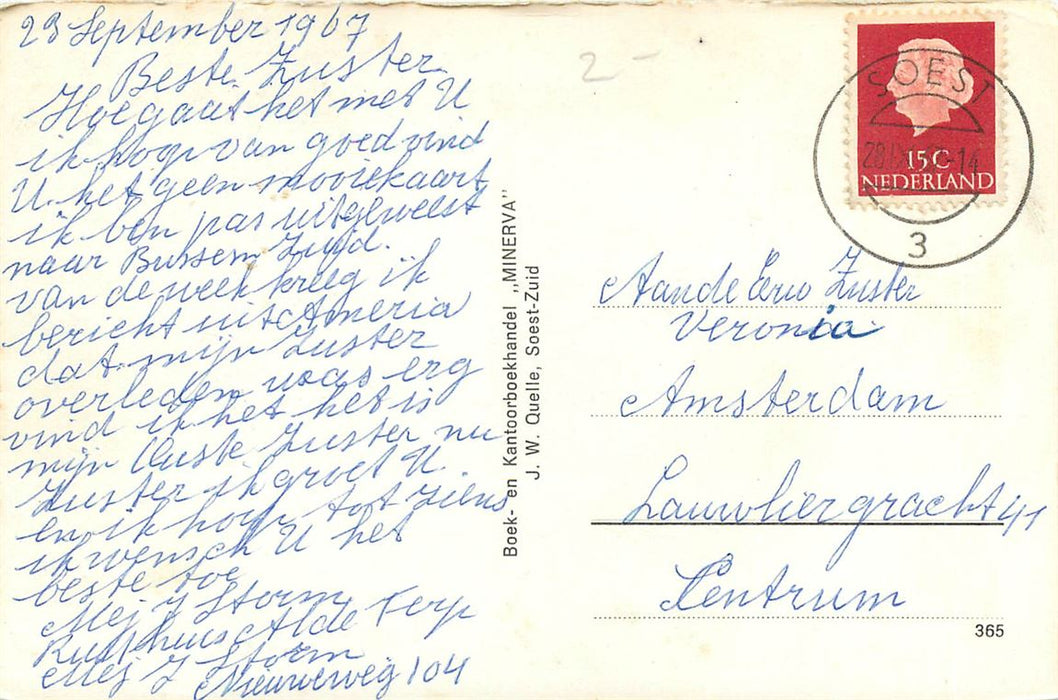 23 September 1967
Beste Zuster
Hoe gaat het met U
ik hoop van goed vind
U het geen mooie kaart
ik ben pas uitgeweest
naar Bussem Zuid.
van de week kreeg ik
bericht uit Ameria
dat mijn Zuster
overleden was erg
vind ik het het is
mijn Ouste Zuster nu
Zuster ik groet U
en ik hoop tot ziens
ik wensch U het
beste toe
Mej J Storm
Rusthuis Alde Terp
Mej J Storm
Nieuweweg 104
Boek- en Kantoorboekhandel „MINERVA"
J. W. Quelle, Soest-Zuid
2 -
SOEST
28 14
3
15 C
NEDERLAND
Aan de Eerw Zuster
Veronia
Amsterdam
Lauwliergracht 41
Centrum
365